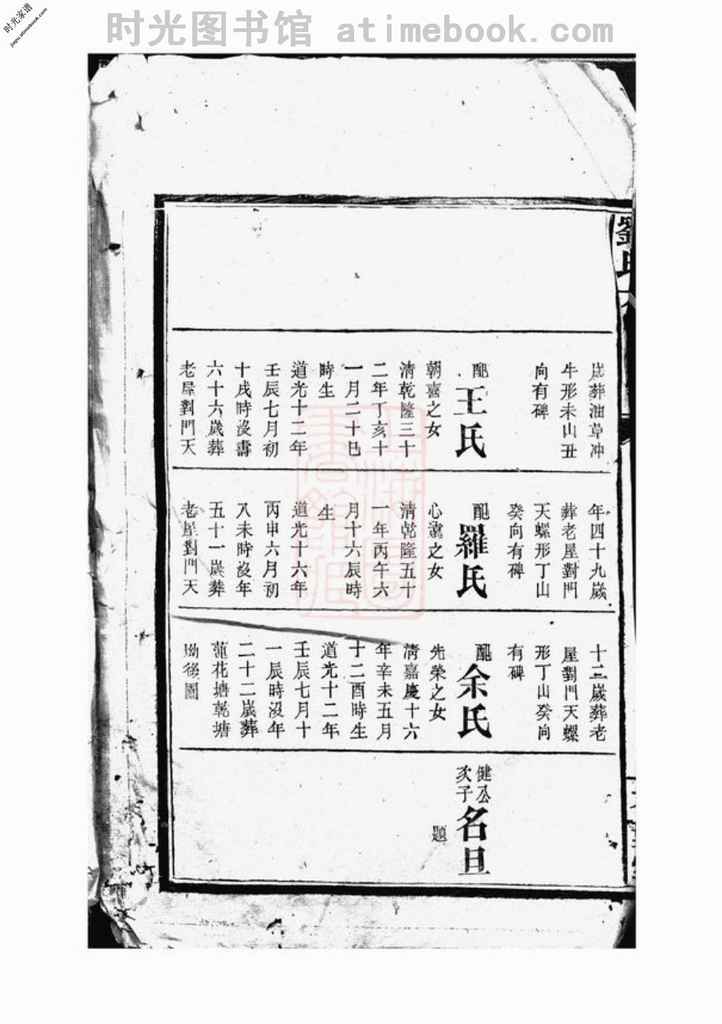 时光图书馆 atimebook.com
时光家谱
jiapu.atimebook.com
劉氏
歲葬油草冲
牛形未山丑
向有碑
配王氏
朝喜之女
清乾隆三十
二年丁亥十
一月二十巳
時生
道光十二年
壬辰七月初
十戌時沒壽
六十六歲葬
老屋對門天
年四十九歲
葬老屋對門
天螺形丁山
癸向有碑
配羅氏
心之女
清乾隆五十
一年丙午六
月十六辰時
生
道光十六年
丙申六月初
八未時沒年
五十一歲葬
老屋對門天
十二歲葬老
屋對門天螺
形丁山癸向
有碑
配余氏
先榮之女
清嘉慶十六
年辛未五月
十二酉時生
道光十二年
壬辰七月十
一辰時沒年
二十二歲葬
蓮花塘乾塘
坳後圖
健公
次子
名旦
題